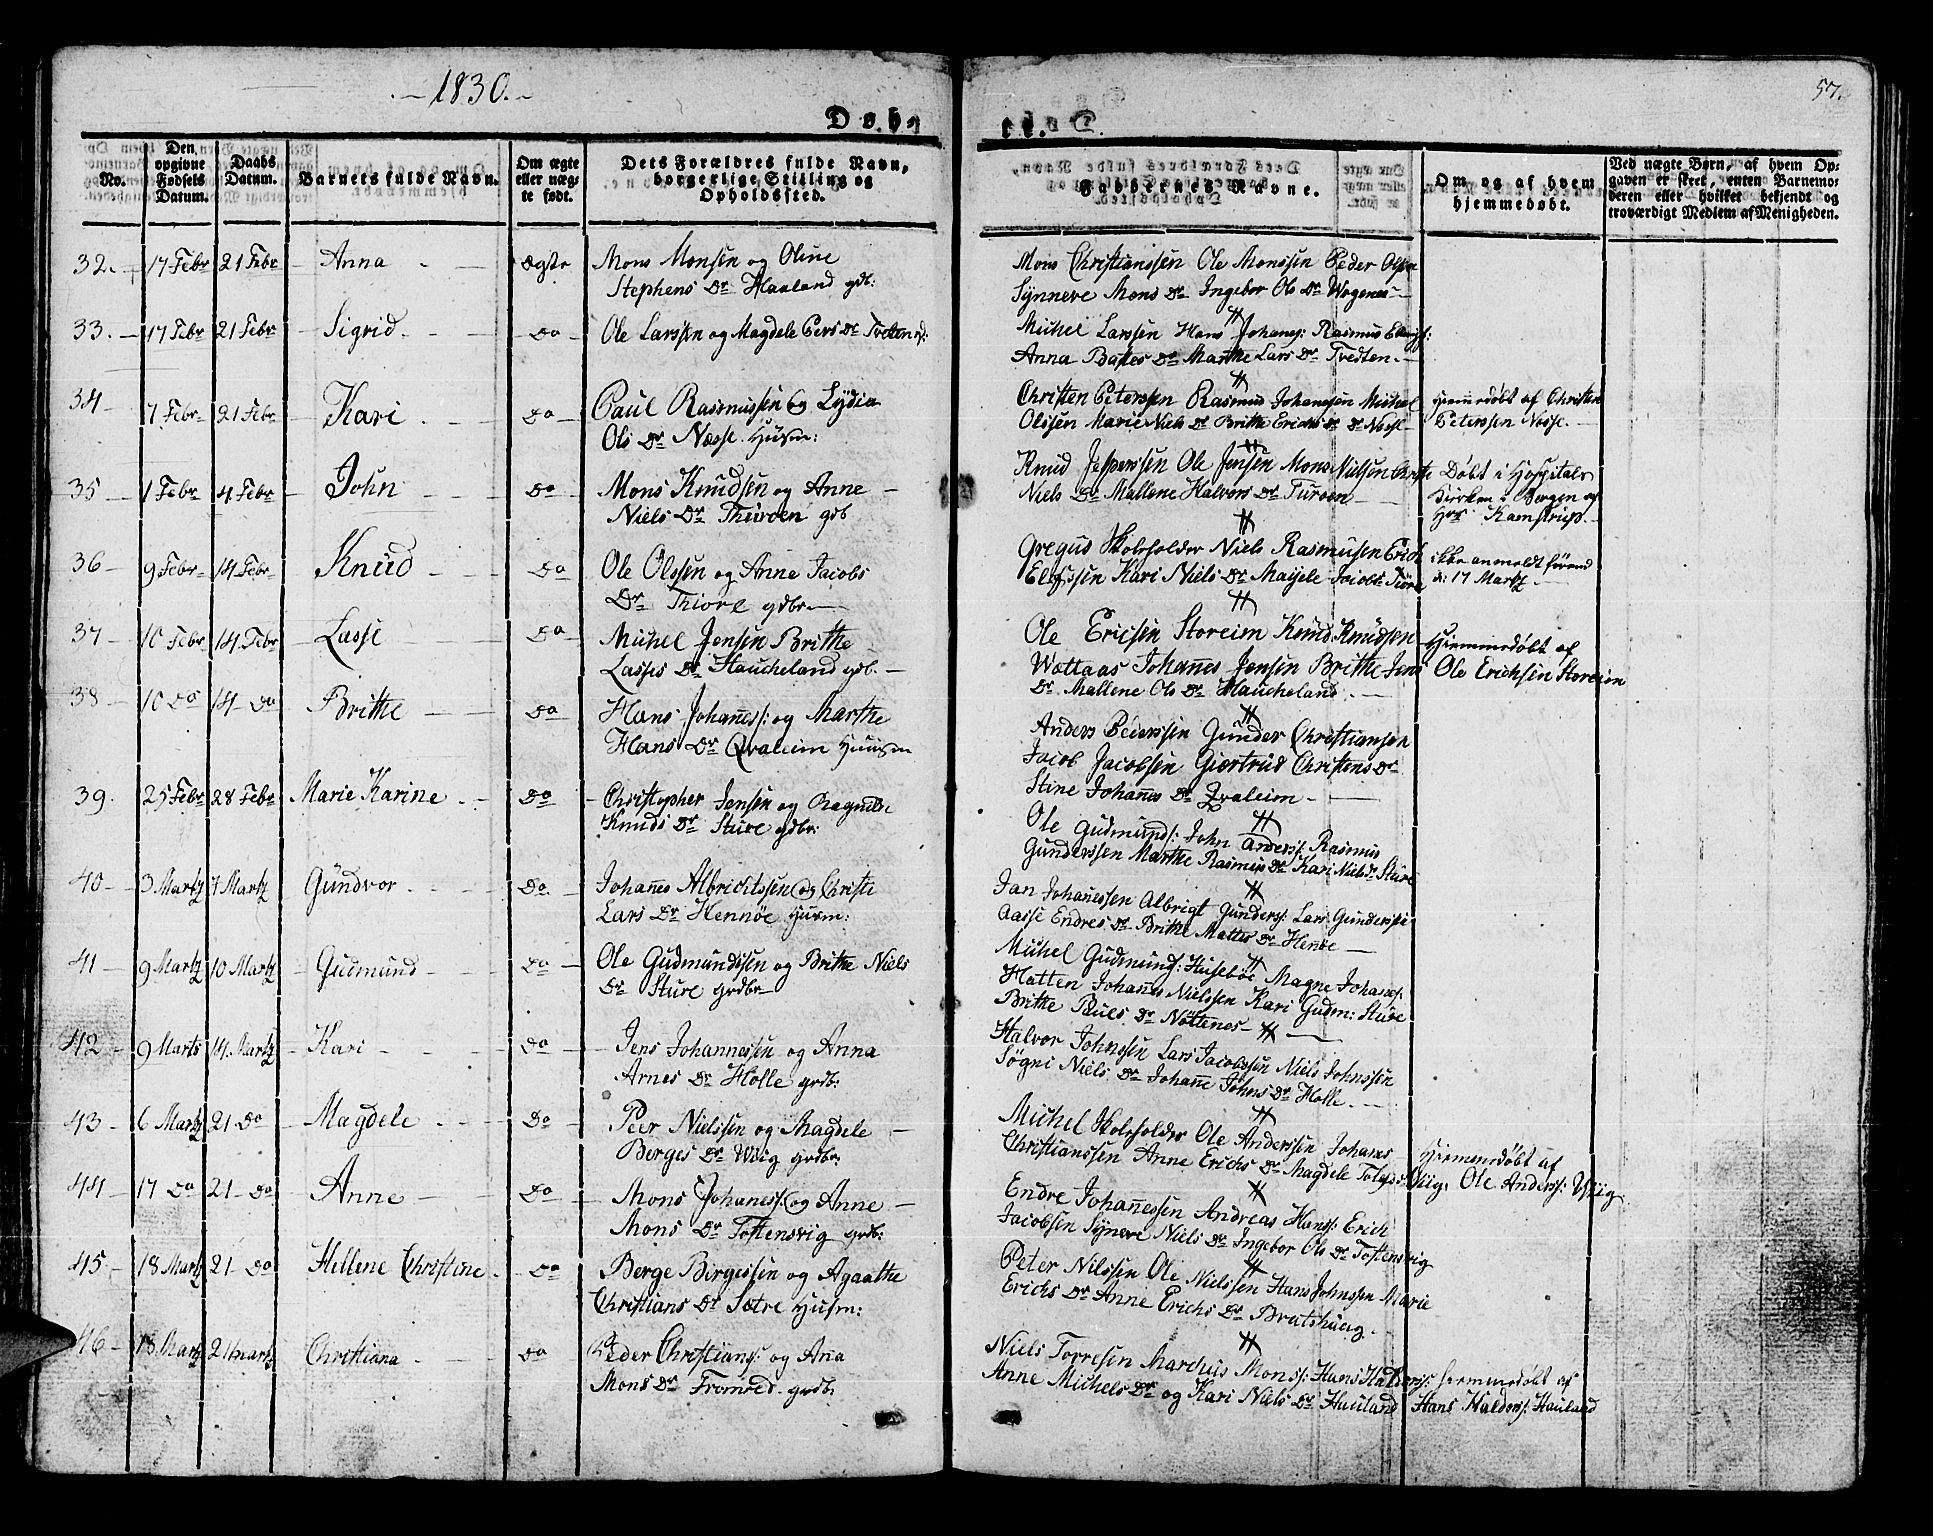 1830.
Døb-
te.
57.
No.
Den opgivne Fødsels Datum.
Daabs Datum.
Barnets fulde Navn.
Om ægte eller uægte født.
Dets Forældres fulde Navn, borgerlige Stilling og Opholdssted.
Faddernes Navne.
Om og af hvem hjemmedøbt.
Ved uægte Børn, af hvem Opgaven er skeet, enten Barnemoderen eller hvilket bekjendt og troværdigt Medlem af Menigheden.
32. 17 Febr 21 Febr Anna Ægte Mons Monsen og Oline
Stephens Dr Haaland gdb:
Mons Christianssen Ole Monssen Peder Olsen
Synneve Mons Dr Ingebor Ols Dr Wogenes
33. 17 Febr 21 Febr Sigrid Do Ole Larssen og Magdele Pers Dr Tvetten gd:
Michel Larssen Hans Johans: Rasmus Ellings:
Anna Baltes Dr Marthe Lars Dr Tvedten
34 7 Febr 21 Febr Kari Do Paul Rasmussen og Lydia
Ols Dr Næsse Husm:
Christen Peterssen Rasmus Johanssen Michel
Olssen Marie Niels Dr Brithe Erichs Dr Do Nosse
Hiemmedøbt af Christen
Peterssen Nosse.
35 1 Febr 4 Febr John Do Mons Knudsen og Anne
Niels Dr Thuroen gdb
Knud Jesperssen Ole Jensen Mons Nielsen Christe
Niels Dr Mallene Halvors Dr Turoen
Døbt i Hospitals
Kirken i Bergen af
Hrr Kamstrup.
36 9 Febr 14 Febr Knud Do Ole Olssen og Anne Jacobs
Dr Thiore gdbr
Gregus Skoleholder Niels Rasmusen Erich
Elefssen Kari Niels Dr Maijele Jacobs Tiore
ikke anmeldt førend
d: 17 Martz
37 10 Febr 14 Febr Lasse Do Michel Jensen Brithe
Lasses Dr Haucheland gdb.
Ole Ericsen Storeim Knud Knudsen
Wottaas Johanes Jensen Brithe Jens
Dr Mallene Ols Dr Haucheland
Hiemmedøbt af
Ole Erichsen Storeim
38 10 Do 14 Do Brithe Do Hans Johaness: og Marthe
Hans Dr Qvaleim Huusm
Anders Pederssen Gunder Christiansen
Jacob Jacobsen Giertrud Christens Dr
Stine Johanes Dr Qvaleim
39. 25 Febr 28 Febr Marie Karine Do Christopher Jensen og Ragnilde
Knuds Dr Sture gdbr:
Ole Gudmunds: John Anders: Rasmus
Gunderssen Marthe Rasmus Dr Kari Niels Dr Sture
40 3 Martz 7 Martz Gundvor Do Johanes Albrichtssen og Christi
Lars Dr Hennøe Husm:
Jan Johanessen Albrigt Gunders: Lars Gunderssen
Aasse Endres Dr Brithe Mattes Dr Henøe
41 9 Martz 10 Martz Gudmund Do Ole Gudmundssen og Brithe Niels
Dr Sture grdbr
Michel Gudmunds: Husebøe Magne Johans:
Hatten Johanes Nielssen Kari Gudm: Sture
Brithe Puls Dr Nøttenes
42 9 Marts 14 Martz Kari Do Jens Johannessen og Anna
Arnes Dr Holle grdb:
Halvor Johnssen Lars Jacobssen Niels Johnssen
Søgni Niels Dr Johane Johns Dr Holle.
43 6 Martz 21 Do Magdele Do Peer Nielssen og Magdele
Berges Dr Wiig grdbr:
Michel Skoleholder Ole Anderssen Johans
Christianssen Anne Erichs Dr Magdele Tolefs Wiig.
Hiemmedøbt af
Ole Anders: Wiig
44 17 Do 21 Do Anne Do Mons Johaness: og Anne
Mons Dr Toftensvig grdb:
Endre Johanessen Andreas Hans: Erich
Jacobsen Synneve Niels Dr Ingebor Ols Dr Toftensvig
45 18 Martz 21 Do Hellene Christine Do Berge Birgessen og Agaathe
Christians Dr Sætre Husm:
Peter Nilssen Ole Nielssen Hans Johnssen Marie
Erichs Dr Anne Erichs Dr Bratshaug
46 18 Martz 21 Martz Christiana Do Peder Christians: og Ana
Mons Dr Fromred grdb:
Niels Torresen Marchus Monss: Hans Halders:
Anne Michels Dr og Kari Niels Dr Hauland
hiemmedøbt af
Hans Halders: Hauland